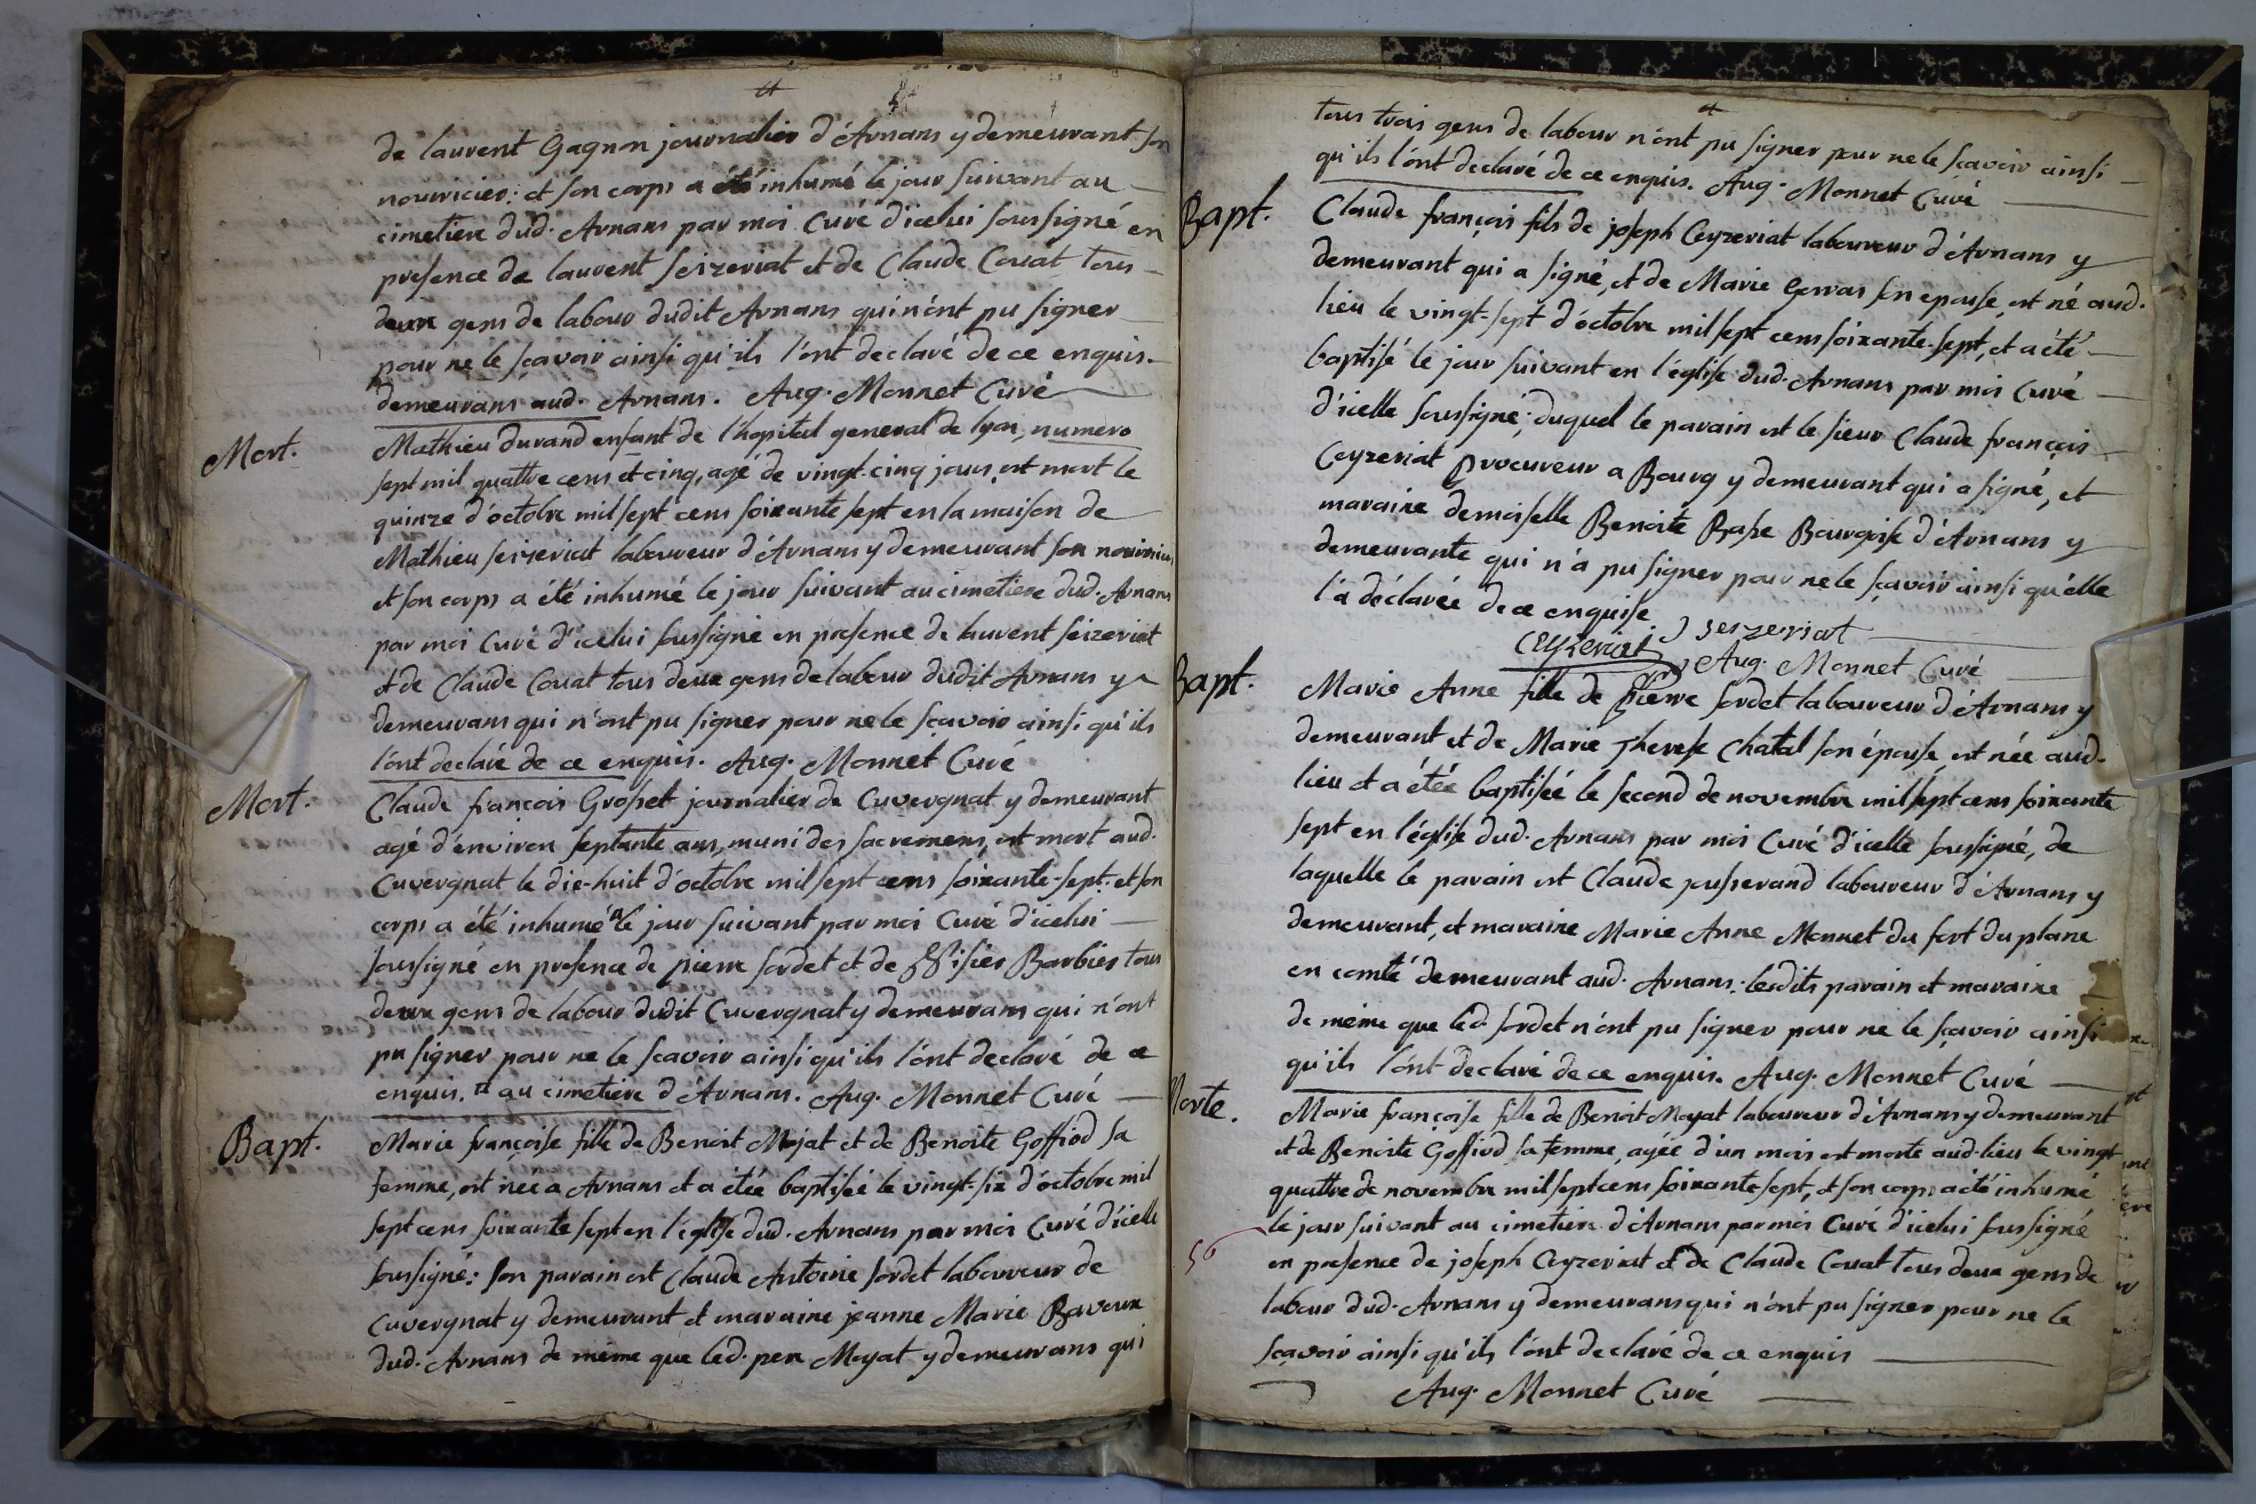 de laurent Gagnon journalier d'Arnans y demeurant son
nourricier: et son corps a été inhumé le jour suivant au
cimetiere dud. Arnans par moi Curé d'icelui soussigné en
presence de laurent Seizeriat et de Claude Couat tous
deux gens de labour dudit Arnans qui n'ont pu signer
pour ne le sçavoir ainsi qu'ils l'ont declaré de ce enquis.
demeurans aud. Arnans. Aug. Monnet Curé
Mort.
Mathieu durand enfant de l'hopital general de lyon, numero
sept mil quattre cens et cinq, agé de vingt-cinq jours est mort le
quinze d'octobre mil sept cens soixante sept en la maison de
Mathieu Seizeriat laboureur d'Arnans y demeurant son nouricier
et son corps a été inhumé le jour suivant au cimetiere dud. Arnans
par moi Curé d'icelui soussigné en presence de laurent Seizeriat
et de Claude Couat tous deux gens de labour dudit Arnans y
demeurans qui n'ont pu signer pour ne le sçavoir ainsi qu'ils
l'ont declaré de ce enquis. Aug. Monnet Curé
Mort.
Claude françois Grosset journalier de Cuvergnat y demeurant
agé d'environ septante ans, muni des sacremens, est mort aud.
Cuvergnat le dix-huit d'octobre mil sept cens soixante-sept: et son
corps a été inhumé le jour suivant par moi Curé d'icelui
soussigné en presence de pierre sordet et de Barbier tous
deux gens de labour dudit Cuvergnat y demeurans qui n'ont
pu signer pour ne le scavoir ainsi qu'ils l'ont declaré de ce
enquis. au cimetiere d'Arnans. Aug. Monnet Curé
Bapt.
Marie françoise fille de Benoit Mojat et de Benoite Goffiod sa
femme, est née a Arnans et a étée baptisée le vingt-six d'octobre mil
sept cens soixante sept en l'église dud. Arnans par moi Curé d'icelle
soussigné: son parain est Claude Antoine sordet laboureur de
Cuvergnat y demeurant et maraine jeanne Marie Baveux
dud. Arnans de même que led. pere Moyat y demeurans qui
tous trois gens de labour n'ont pu signer pour ne le sçavoir ainsi
qu'ils l'ont declaré de ce enquis. Aug. Monnet Curé
Bapt.
Claude françois fils de joseph Ceyzeriat laboureur d'Arnans y
demeurant qui a signé, et de Marie Gervas son epouse, est né aud.
lieu le vingt-sept d'octobre mil sept cens soixante-sept, et a été
baptisé le jour suivant en l'église dud. Arnans par moi Curé
d'icelle soussigné; duquel le parain est le sieur Claude françois
Ceyzeriat Procureur a Bourg y demeurant qui a signé, et
maraine demoiselle Benoite Basse Bourgoise d'Arnans y
demeurante qui n'a pu signer pour ne le sçavoir ainsi qu'elle
l'a déclarée de ce enquise
Ceyzeriat J seizeriat
Aug. Monnet Curé
Bapt.
Marie Anne fille de pierre sordet laboureur d'Arnans y
demeurant et de Marie Therese Chatal son épouse est née aud.
lieu et a étée baptisée le second de novembre mil sept cens soixante
sept en l'église dud. Arnans par moi Curé d'icelle soussigné, de
laquelle le parain est Claude jousserand laboureur d'Arnans y
demeurant, et maraine Marie Anne Monnet du fort du plane
en comté demeurant aud. Arnans: lesdits parain et maraine
de même que led. sordet n'ont pu signer pour ne le sçavoir ainsi
qu'ils l'ont declaré de ce enquis. Aug. Monnet Curé
Morte.
Marie françoise fille de Benoit Moyat laboureur d'Arnans y demeurant
et de Benoite Goffiod sa femme, agée d'un mois est morte aud. lieu le vingt
quattre de novembre mil sept cens soixante sept, et son corps a été inhumé
le jour suivant au cimetiere d'Arnans par moi Curé d'icelui soussigné
56
en presence de joseph Ceyzeriat et de Claude Couat tous deux gens de
labour dud. Arnans y demeurans qui n'ont pu signer pour ne le
sçavoir ainsi qu'ils l'ont declaré de ce enquis
Aug. Monnet Curé